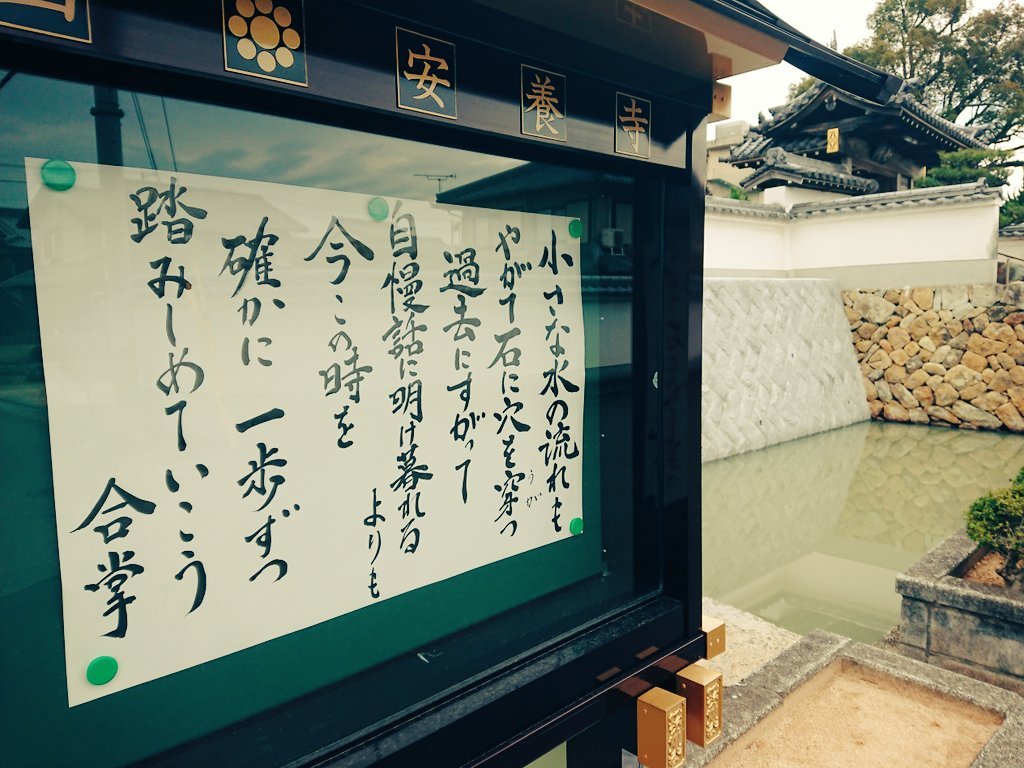 安養寺
小さな水の流れも
やがて石に穴を穿つ
うが
過去にすがって
自慢話に明け暮れる
よりも
今この時を
確かに一歩ずつ
踏みしめていこう
合掌